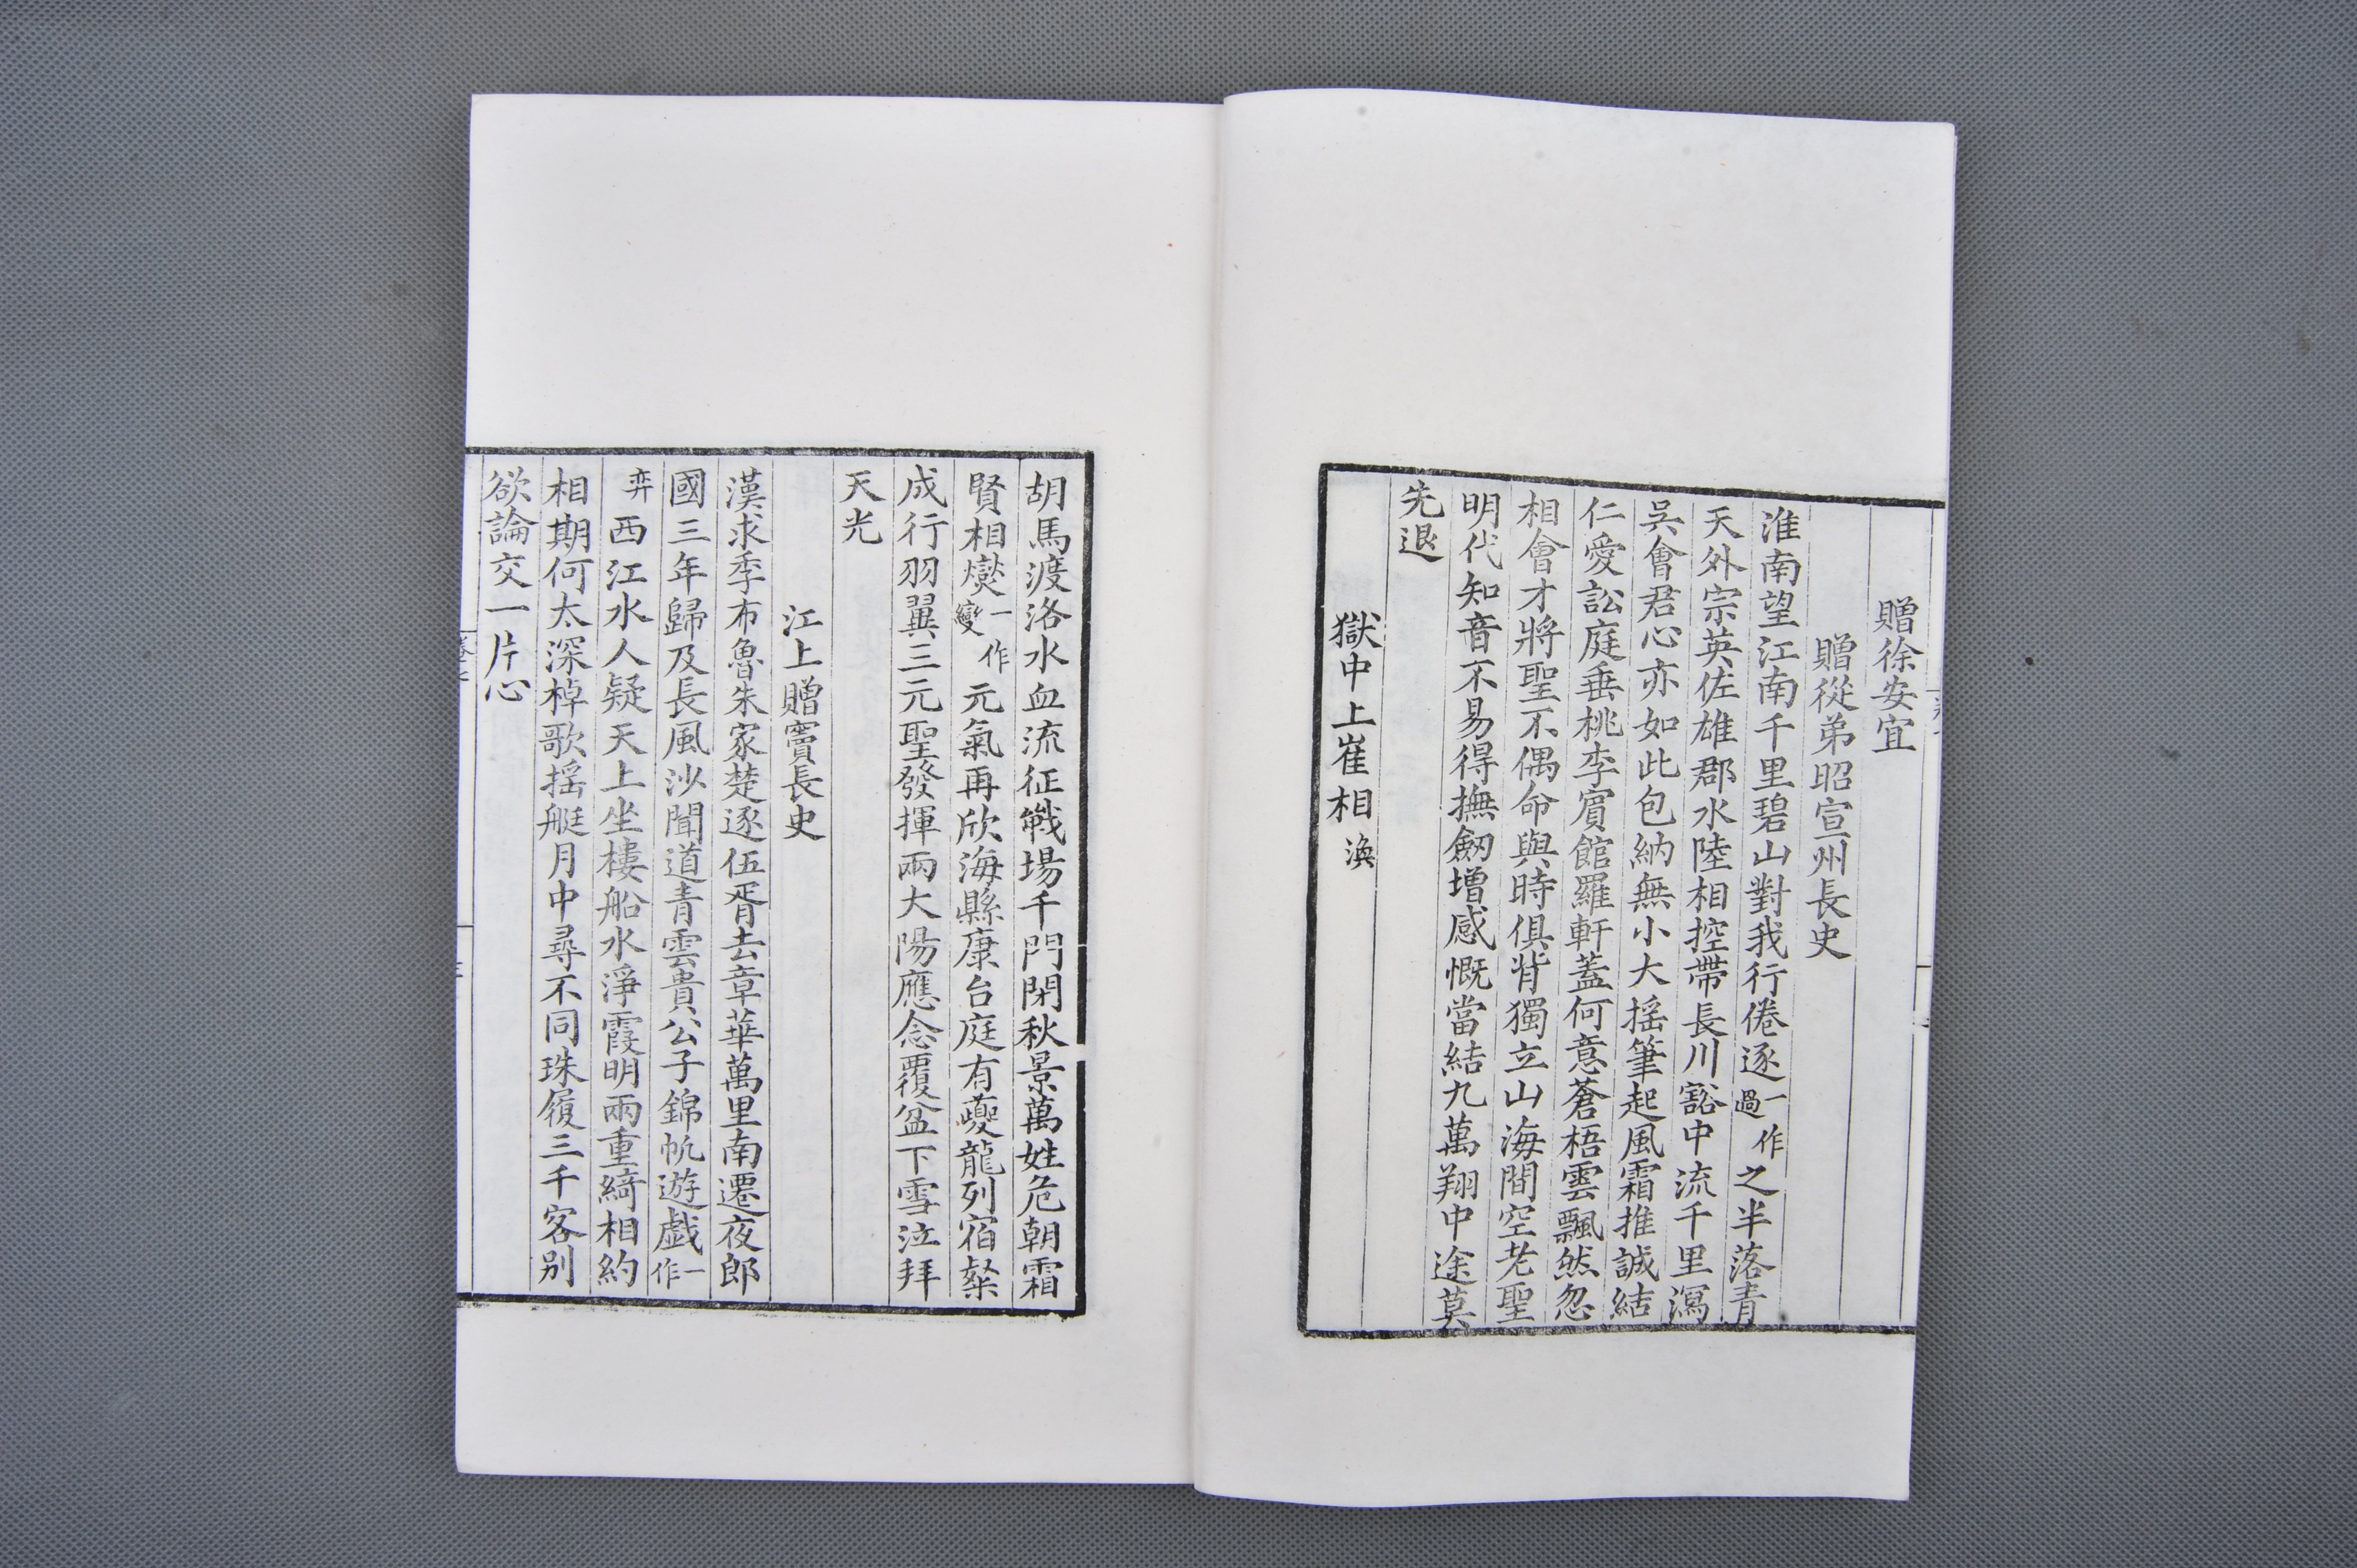 贈徐安宜
贈從弟昭宣州長史
淮南望江南千里碧山對我行倦逐一作過之半落青
天外宗英佐雄郡水陸相控帶長川豁中流千里瀉
吳會君心亦如此包納無小大揺筆起風霜推誠結
仁愛訟庭垂桃李賔館羅軒蓋何意蒼梧雲飄然忽
相會才將聖不偶命與時俱背獨立山海間空老聖
明代知音不易得撫劒增感慨當結九萬翔中途莫
先退
獄中上崔相渙
胡馬渡洛水血流征戰場千門閉秋景萬姓危朝霜
賢相爕一作變元氣再欣海縣康台庭有夔龍列宿粲
成行羽翼三元聖發揮兩大陽應念覆盆下雪泣拜
天光
江上贈竇長史
漢求季布魯朱家楚逐伍胥去章華萬里南遷夜郎
國三年歸及長風沙聞道青雲貴公子錦帆遊戲一作
弈西江水人疑天上坐樓船水淨霞明兩重綺相約
相期何太深棹歌揺艇月中尋不同珠履三千客别
欲論交一片心